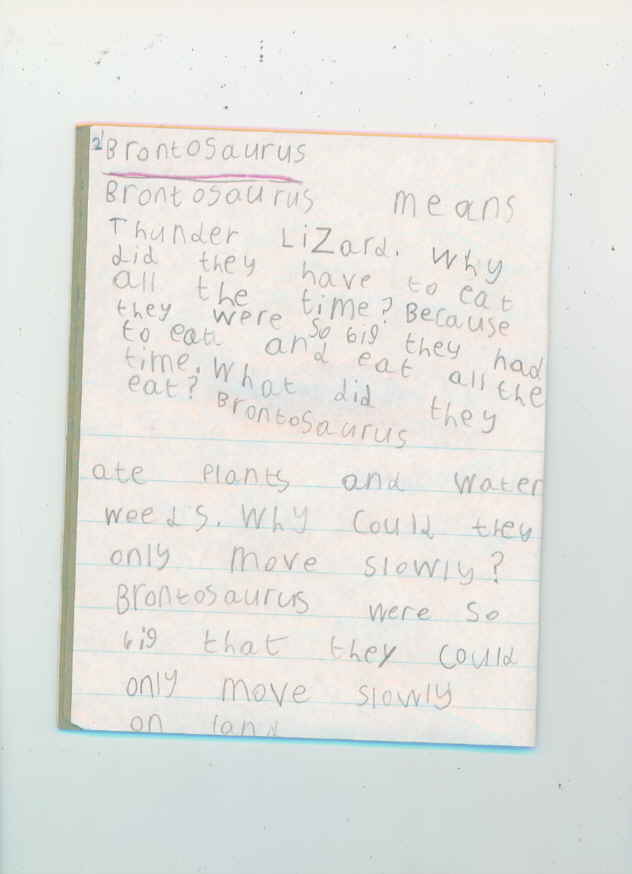 2 Brontosaurus
Brontosaurus means
Thunder LiZard. Why
did they have to eat
all the time? Because
they were so big they had
to eat and eat all the
time. What did they
eat? Brontosaurus
ate Plants and water
weeds. Why could they
only move slowly?
Brontosaurus were so
big that they could
only move slowly
on land